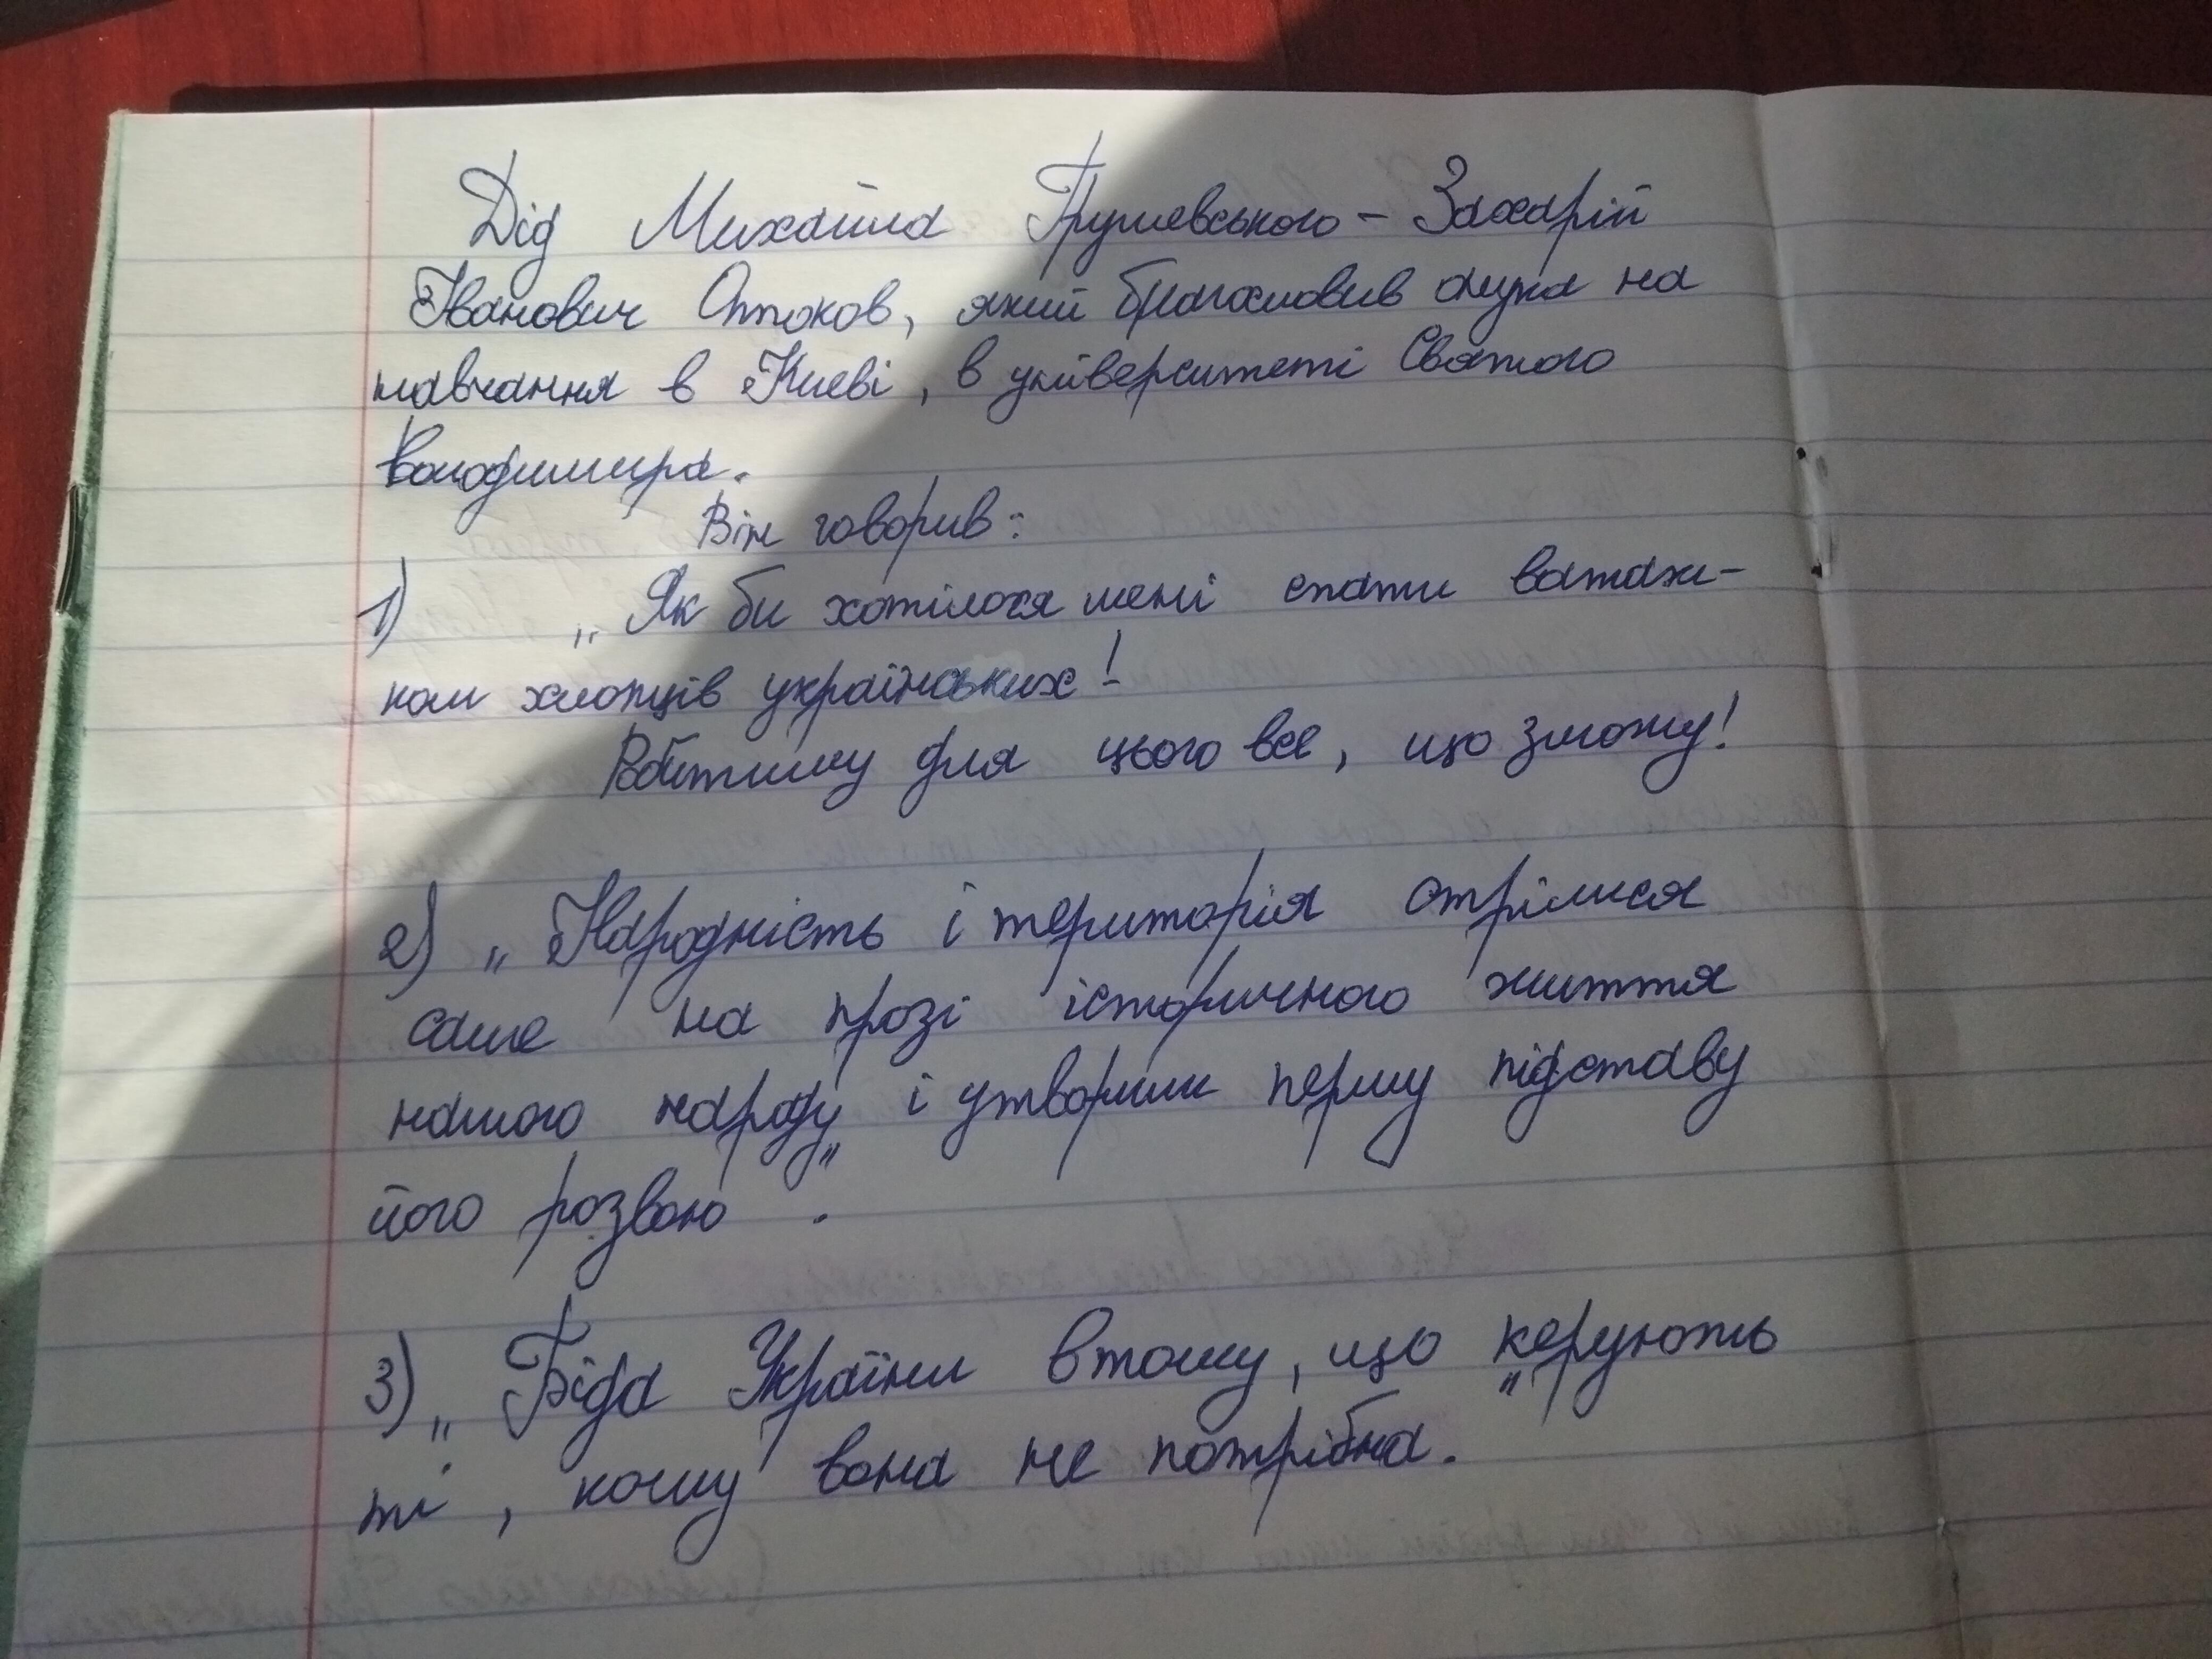 Дід Михайла Грушевського - Захарій
Іванович Оппоков, який благословив онука на
навчання в Києві, в університеті Святого
Володимира.
Він говорив:
1) „Як би хотілося мені стати ватаж-
ком хлопців українських!
Вчитиму для цього все, що зможу!
2) „Народність і територія стрілися
саме на прозі історичного життя
нашого народу і утворили першу підставу
його розвою".
3) „Біда України в тому, що керують
ті, кому вона не потрібна."